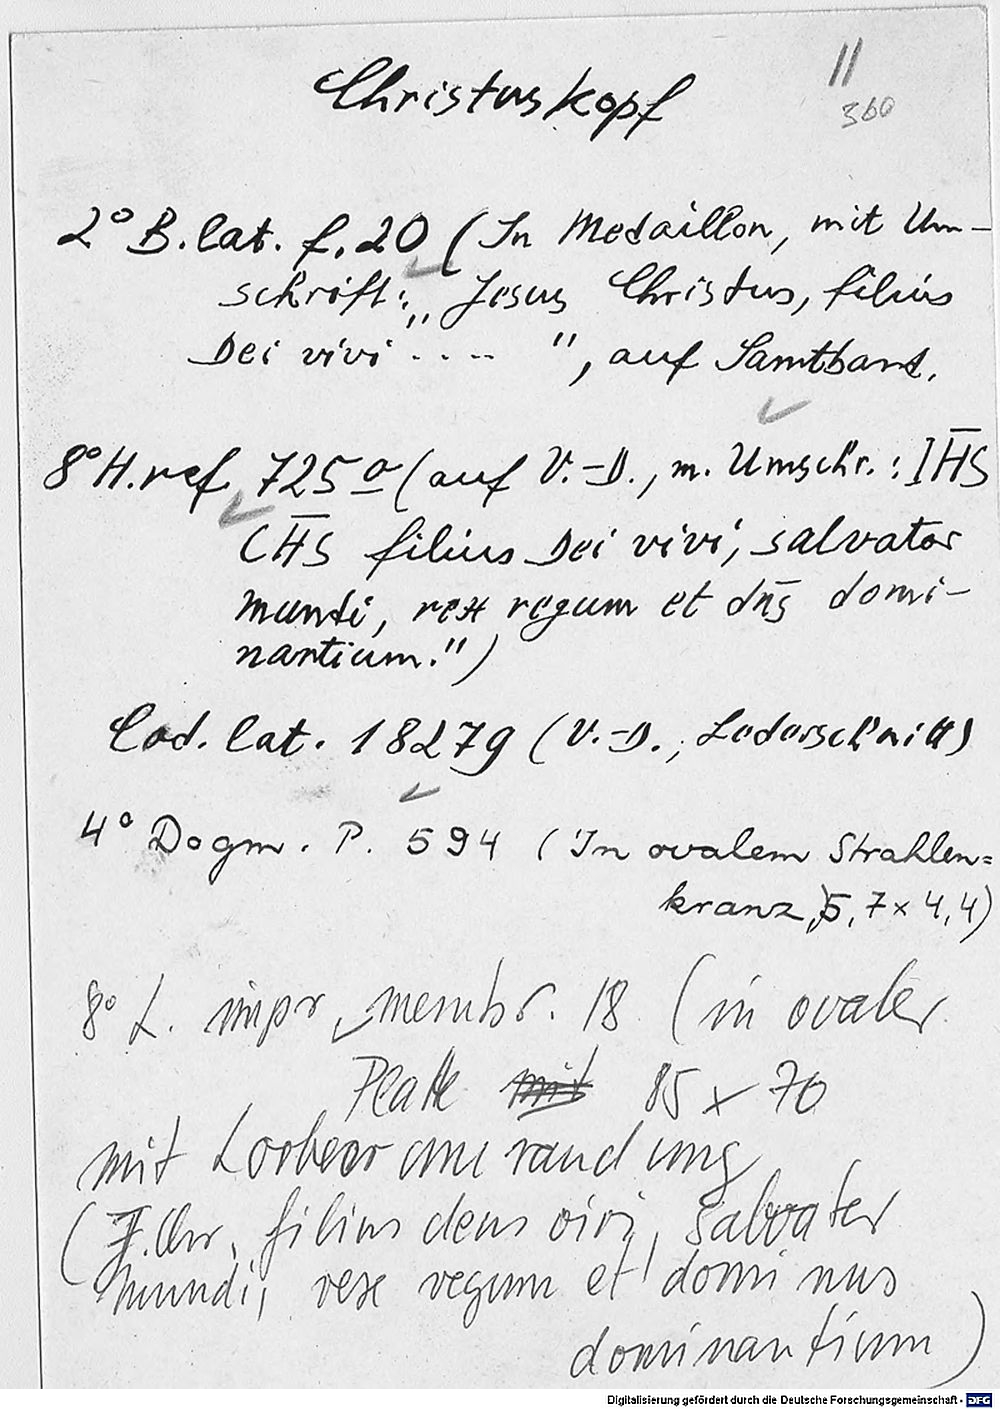 Christuskopf
11
360
2° B. lat. f. 20 (In Medaillon, mit Um-
schrift: „Jesus Christus, filius
Dei vivi ....", auf Samtband.
8° H. ref. 725 o (auf V.-D., m. Umschr.: IH̅S
CH̅S filius Dei vivi, salvator
mundi, rex regum et dn̅s domi-
nantium.")
Cod. lat. 18279 (V.-D., Lederschnitt)
4° Dogm. P. 594 (In ovalem Strahlen=
kranz, 5,7 x 4,4)
8° L. impr. membr. 18 (in ovaler
Platte mit 85 x 70
mit Lorbeerumrandung
(J. Chr. filius deus vivi, salvater
mundi, rex regum et dominus
dominantium)
Digitalisierung gefördert durch die Deutsche Forschungsgemeinschaft - DFG